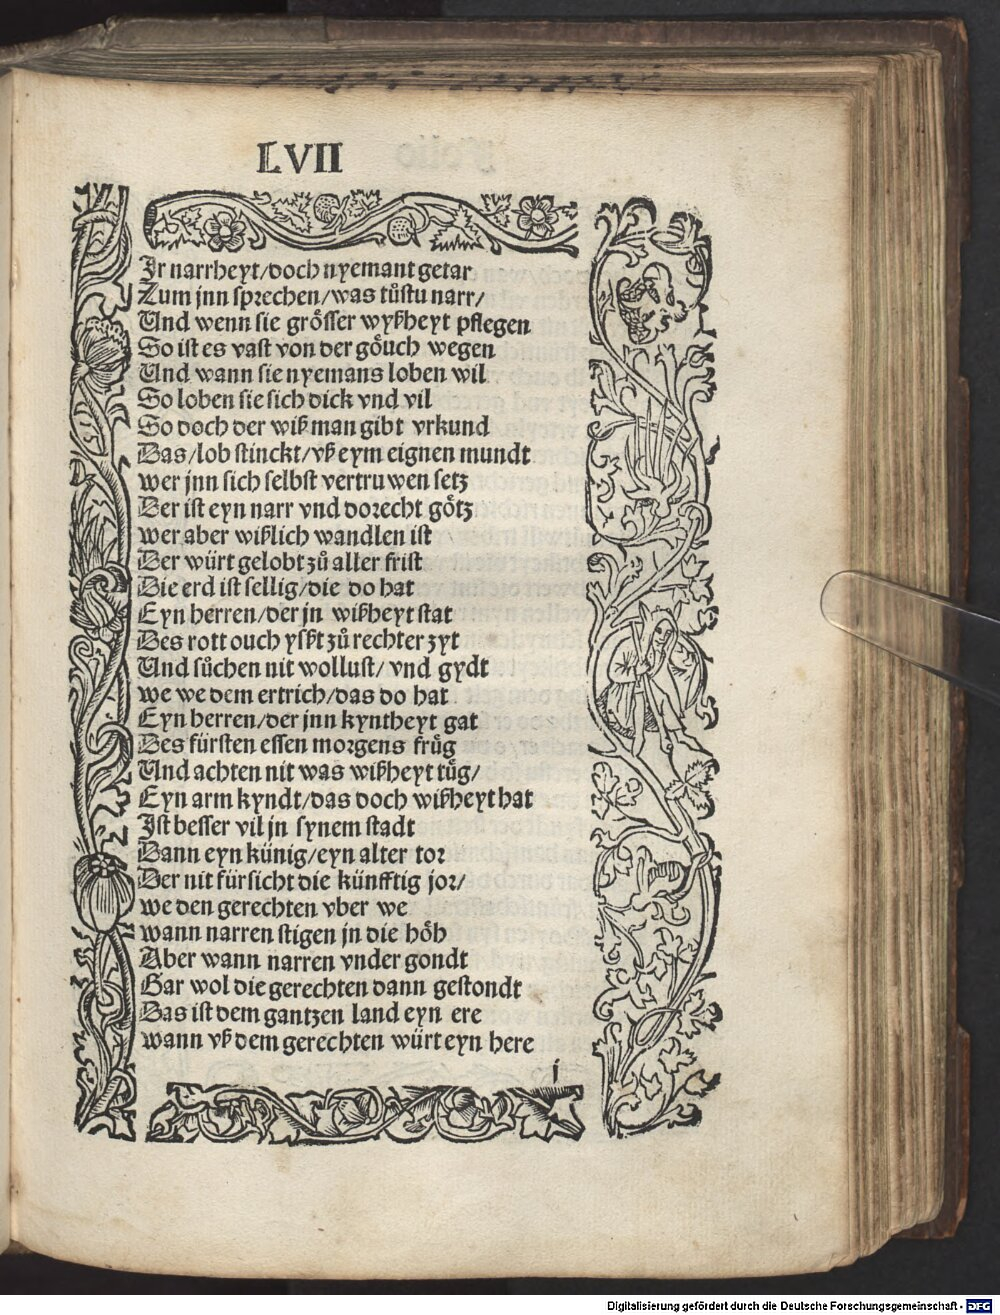 LVII
Ir narrheyt/doch nyemant getar
Zům jnn sprechen/was tůstu narr/
Und wenn sie grösser wyßheyt pflegen
So ist es vast von der göuch wegen
Und wann sie nyemans loben wil
So loben sie sich dick vnd vil
So doch der wißman gibt vrkund
Das/lob stinckt/vß eym eignen mundt
wer jnn sich selbst vertruwen setz
Der ist eyn narr vnd dorecht götz
wer aber wißlich wandlen ist
Der würt gelobt zů aller frist
Die erd ist sellig/die do hat
Eyn herren/der jn wißheyt stat
Des rott ouch yßt zů rechter zyt
Und sůchen nit wollust/vnd gydt
we we dem ertrich/das do hat
Eyn herren/der jnn kyntheyt gat
Des fürsten essen morgens früg
Und achten nit was wißheyt tüg/
Eyn arm kyndt/das doch wißheyt hat
Ist besser vil jn synem stadt
Dann eyn künig/eyn alter tor
Der nit fürsicht die künfftig jor/
we den gerechten vber we
wann narren stigen jn die höh
Aber wann narren vnder gondt
Gar wol die gerechten dann gestondt
Das ist dem gantzen land eyn ere
wann vß dem gerechten würt eyn here
j
Digitalisierung gefördert durch die Deutsche Forschungsgemeinschaft - DFG